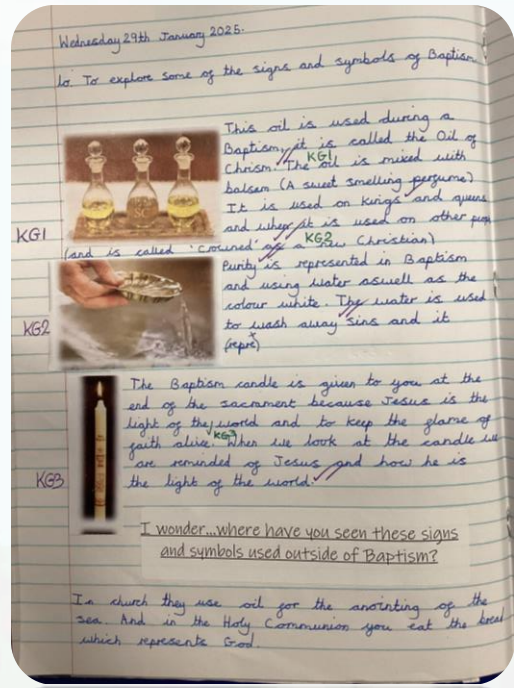 Wednesday 29th January 2025.
lo. To explore some of the signs and symbols of Baptism
This oil is used during a
Baptism, it is called the Oil of
KG1
Chrism. The oil is mixed with
balsam (A sweet smelling perfume)
It is used on kings and queens
and when it is used on other
KG1
KG2
(and is called 'crowned' as a new Christian)
Purity is represented in Baptism
and using water aswell as the
colour white. The water is used
KG2
to wash away sins and it
(repre)
The Baptism candle is given to you at the
end of the sacrament because Jesus is the
light of the world and to keep the flame of
KG3
faith alive. When we look at the candle we
are reminded of Jesus and how he is
KG3
the light of the world.
I wonder...where have you seen these signs
and symbols used outside of Baptism?
In church they use oil for the anointing of the
sea. And in the Holy Communion you eat the bread
which represents God.